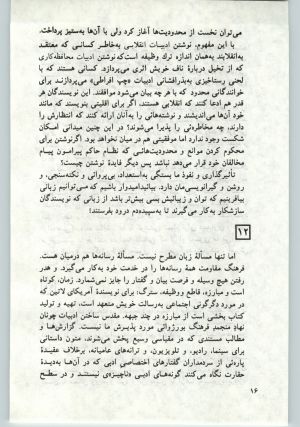 می‌توان نخست از محدودیت‌ها آغاز کرد ولی با آن‌ها به‌ستیز پرداخت.
با این مفهوم، نوشتن ادبیات انقلابی به‌خاطر کسانی که معتقد
به‌انقلابند به‌همان اندازه ترک وظیفه است که نوشتن ادبیات محافظه‌کاری
که از تخیل دربارهٔ ناف خویش اثری می‌پردازد. کسانی هستند که با
لحنی رستاخیزی به‌بذرافشانی ادبیات «چپ افراطی» می‌پردازند برای
خوانندگانی محدود که با هر چه بیان می‌شود موافقند. این نویسندگان هر
قدر هم ادعا کنند که انقلابی هستند، اگر برای اقلیتی بنویسند که مانند
خود آن‌ها می‌اندیشند و نوشته‌هائی را به‌آنان ارائه کنند که انتظارش را
دارند، چه مخاطره‌ئی را پذیرا می‌شوند؟ در این چنین میدانی امکان
شکست وجود ندارد اما موفقیتی هم در میان نخواهد بود. اگر نوشتن برای
محکوم کردن موانع و محدودیت‌هائی که نظام حاکم پیرامون پیام
مخالفان خود قرار می‌دهد نباشد پس دیگر فایدهٔ نوشتن چیست؟
تأثیرگذاری و نفوذ ما بستگی به‌استعداد، بی‌پروائی و نکته‌سنجی، و
روشن و گیرانویسی‌مان دارد. بیائیدامیدوار باشیم که می‌توانیم زبانی
بیافرینیم که توان و زیبائیش بسی بیش‌تر باشد از زبانی که نویسندگان
سازشکار به‌کار می‌گیرند تا به‌سپیده‌دم درود بفرستند!
۱۲
اما تنها مسألهٔ زبان مطرح نیست. مسألهٔ رسانه‌ها هم درمیان هست.
فرهنگ مقاومت همهٔ رسانه‌ها را در خدمت خود به‌کار می‌گیرد. و هدر
رفتن هیچ وسیله و فرصت بیان و گفتار را جایز نمی‌شمارد. زمان، کوتاه
است و مبارزه، قاطع وظیفه، سترگ: برای نویسندهٔ آمریکای لاتین که
در مورد دگرگونی اجتماعی به‌رسالت خویش متعهد است، تهیه و تولید
کتاب بخشی است از مبارزه در چند جبهه. مقدس ساختن ادبیات چونان
نهاد منجمد فرهنگ بورژوائی مورد پذیرش ما نیست. گزارش‌ها و
مطالب مستندی که در مقیاسی وسیع پخش می‌شوند، متون داستانی
برای سینما، رادیو، و تلویزیون، و ترانه‌های عامیانه، برخلاف عقیدهٔ
پاره‌ئی از سردمداران گفتارهای اختصاصی ادبی که در آن‌ها به‌دیدهٔ
حقارت نگاه می‌کنند گونه‌های ادبی «ناچیز»ی نیستند و در سطح
۱۶